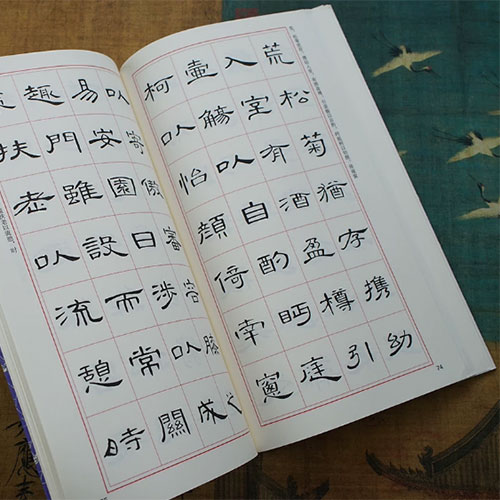 荒松菊猶存携幼
入室有酒盈樽引
壺觴以自酌眄庭
柯以怡顔倚南窗
74
以寄傲審容膝之
易安園日涉以成
趣門雖設而常關
扶老以流憩時